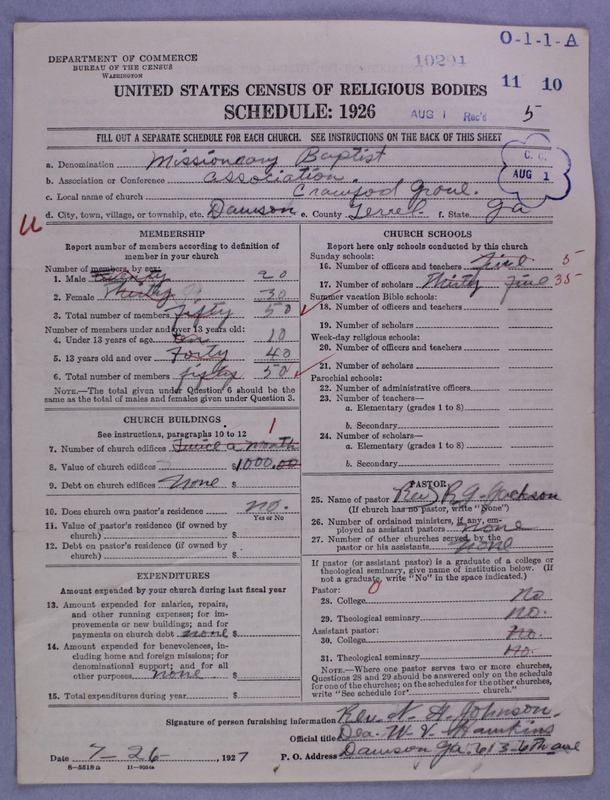 O-1-1-A
DEPARTMENT OF COMMERCE
BUREAU OF THE CENSUS
WASHINGTON
10294
11 10
UNITED STATES CENSUS OF RELIGIOUS BODIES
SCHEDULE: 1926
AUG 1 Rec'd 5
FILL OUT A SEPARATE SCHEDULE FOR EACH CHURCH. SEE INSTRUCTIONS ON THE BACK OF THIS SHEET
C. C.
AUG 1
a. Denomination Missionary Baptist
b. Association or Conference association.
c. Local name of church Crawfod Grove.
d. City, town, village, or township, etc. Dawson e. County Terrel f. State Ga
MEMBERSHIP
Report number of members according to definition of
member in your church
Number of members, by sex:
1. Male twenty 20
2. Female thirty 30
3. Total number of members fifty 50
Number of members under and over 13 years old:
4. Under 13 years of age ten 10
5. 13 years old and over Forty 40
6. Total number of members fifty 50
NOTE.—The total given under Question 6 should be the
same as the total of males and females given under Question 3.
CHURCH BUILDINGS
See instructions, paragraphs 10 to 12
1
7. Number of church edifices twice a month
8. Value of church edifices $1000.00
9. Debt on church edifices None $
10. Does church own pastor's residence no.
Yes or No
11. Value of pastor's residence (if owned by
church) $
12. Debt on pastor's residence (if owned by
church) $
EXPENDITURES
Amount expended by your church during last fiscal year
13. Amount expended for salaries, repairs,
and other running expenses; for im-
provements or new buildings; and for
payments on church debt none $
14. Amount expended for benevolences, in-
cluding home and foreign missions; for
denominational support; and for all
other purposes none $
15. Total expenditures during year $
CHURCH SCHOOLS
Report here only schools conducted by this church
Sunday schools:
16. Number of officers and teachers five 5
17. Number of scholars Thirty five 35
Summer vacation Bible schools:
18. Number of officers and teachers
19. Number of scholars
Week-day religious schools:
20. Number of officers and teachers
21. Number of scholars
Parochial schools:
22. Number of administrative officers
23. Number of teachers—
a. Elementary (grades 1 to 8)
b. Secondary
24. Number of scholars—
a. Elementary (grades 1 to 8)
b. Secondary
PASTOR
25. Name of pastor Rev R G Jackson
(If church has no pastor, write "None")
26. Number of ordained ministers, if any, em-
ployed as assistant pastors none
27. Number of other churches served by the
pastor or his assistants none
If pastor (or assistant pastor) is a graduate of a college or
theological seminary, give name of institution below. (If
not a graduate, write "No" in the space indicated.)
Pastor: 0
28. College No
29. Theological seminary No.
Assistant pastor:
30. College No.
31. Theological seminary No.
NOTE.—Where one pastor serves two or more churches,
Questions 28 and 29 should be answered only on the schedule
for one of the churches; on the schedules for the other churches,
write "See schedule for church."
Signature of person furnishing information Rev. N. H. Johnson.
Official title Dea. W. V. Hawkins
Date 7-26, 1927 P. O. Address Dawson Ga. 613-6th ave
8—5518a 11—9054a